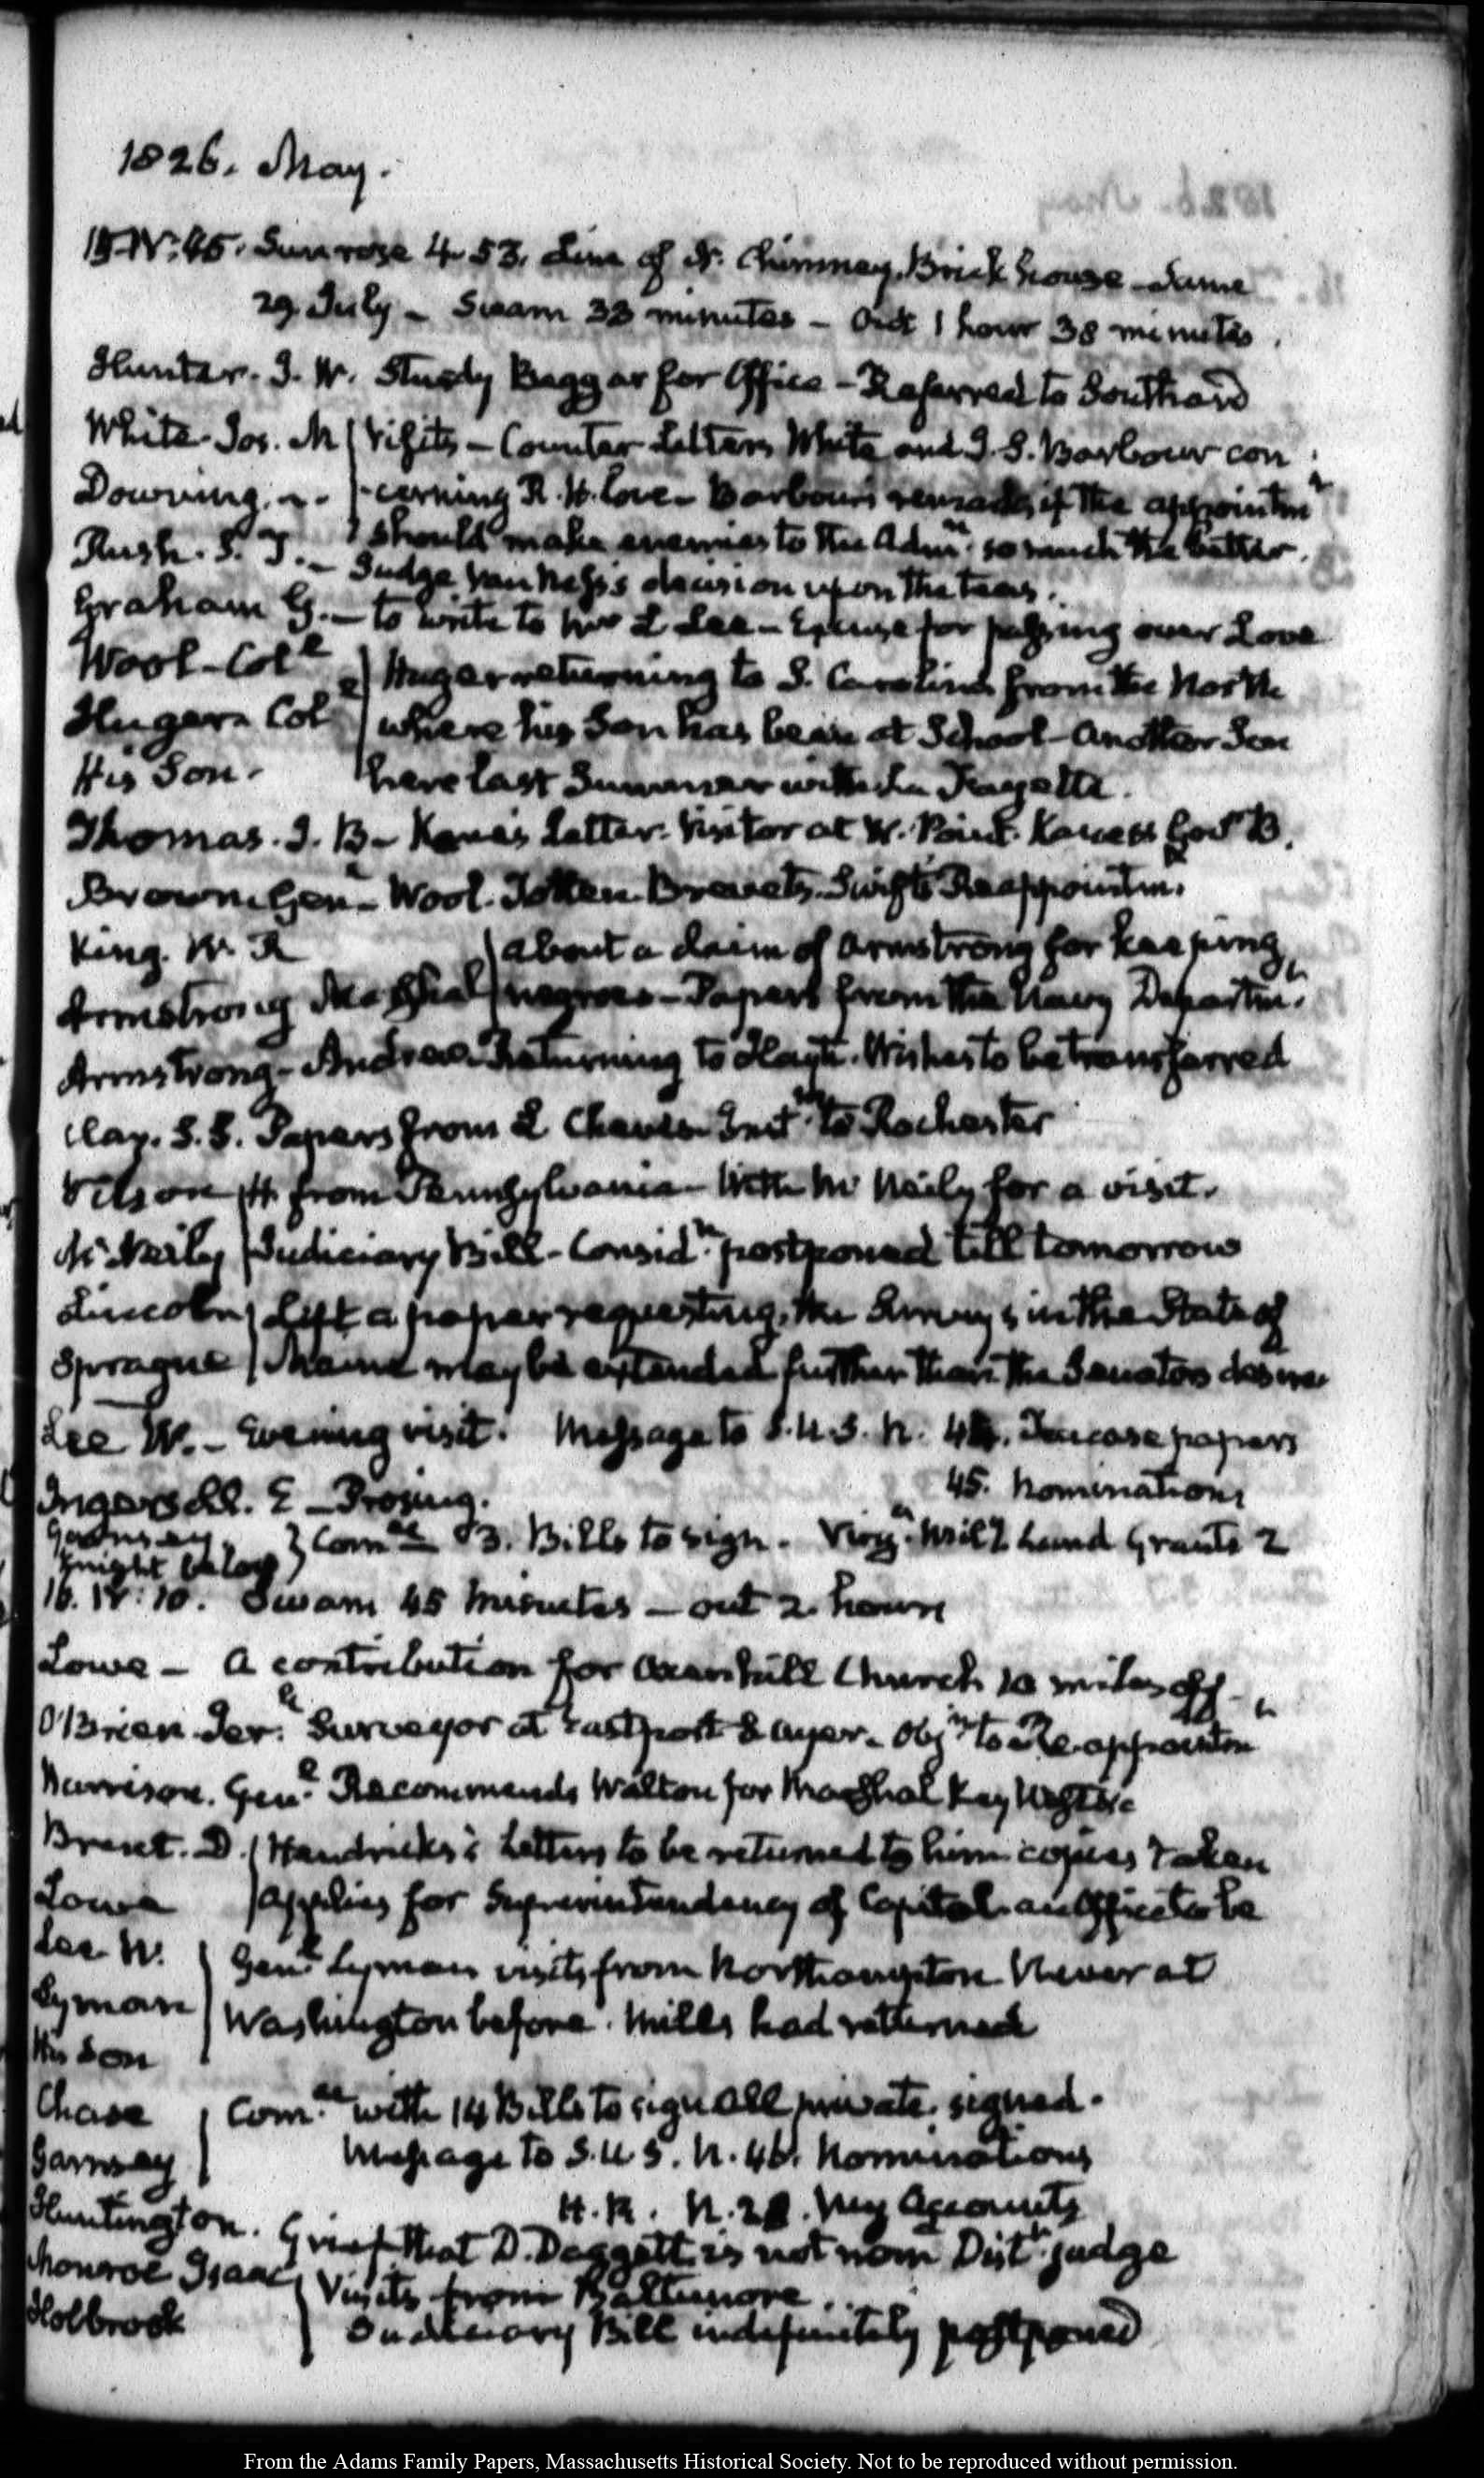 1826. May.
15. IV:45. Sun rose 4.53. Line of N. Chimney, Brick house - Same
29 July - Swam 33 minutes - Out 1 hour 38 minutes.
Hunter. J. W. Sturdy Beggar for Office - Referred to Southard
White. Jos. M Visits - Counter Letters White and J. S. Barbour con
Downing. cerning R. H. Love - Barbour's remark, if the appointmt
should make enemies to the Admn. so much the better.
Rush. S. T. - Judge Van Ness's decision upon the teas.
Graham G. - to write to Mr L Lee - Excuse for passing over Love
Wool - Coll
Huger returning to S. Carolina from the North
Huger Coll where his Son has been at School - Another Son
His Son. here last Summer with La Fayette.
Thomas. J. B - Kane's Letter. Visitor at W. Point. Kane's Govr B.
Brown Genl - Wool. Totten Brevets. Swift's Reappointmt.
King. W. R about a claim of Armstrong for keeping
Armstrong Marshal negroes - Papers from the Navy Departmt.
Armstrong - Andrew Returning to Hayti. Wishes to be transferred
Clay. S.S. Papers from L Cheves Instns to Rochester
Wilson H from Pennsylvania - With Mr Neily for a visit.
Mc Neily Judiciary Bill - Considn postponed till tomorrow
Lincoln Left a paper requesting, the Surveys in the State of
Sprague Maine may be extended further than the Senators desire
Lee W. - Evening visit. Message to S.U.S. N. 44. papers
45. Nominations
Ingersoll. E - Prosing.
Garnsey
Comee 3. Bills to sign. Virga Milty Land Grants 2
Knight below
16. IV:10. Swam 45 minutes - out 2 hours
Lowe - A contribution for Oxenhill Church 10 miles off -
O'Brien Jerh Surveyor at Eastport & Ayer - Objn to Re-appointmt
Harrison. Genl Recommends Walton for Marshal Key West
Brent. D. Hendricks's Letters to be returned to him copies taken
Lowe applies for Superintendency of Capitol - an Office to be
Lee W. Genl Lyman visits from Northampton Never at
Lyman Washington before. Mills had returned
His Son
Chase Comee with 14 Bills to sign all private. signed.
Garnsey Message to S.U.S. N. 46. Nominations
H.R. N. 28. My Accounts
Huntington. Grief that D. Daggett is not nomd Distt judge
Monroe Isaac Visits from Baltimore.
Holbrook Judiciary Bill indefinitely postponed
From the Adams Family Papers, Massachusetts Historical Society. Not to be reproduced without permission.